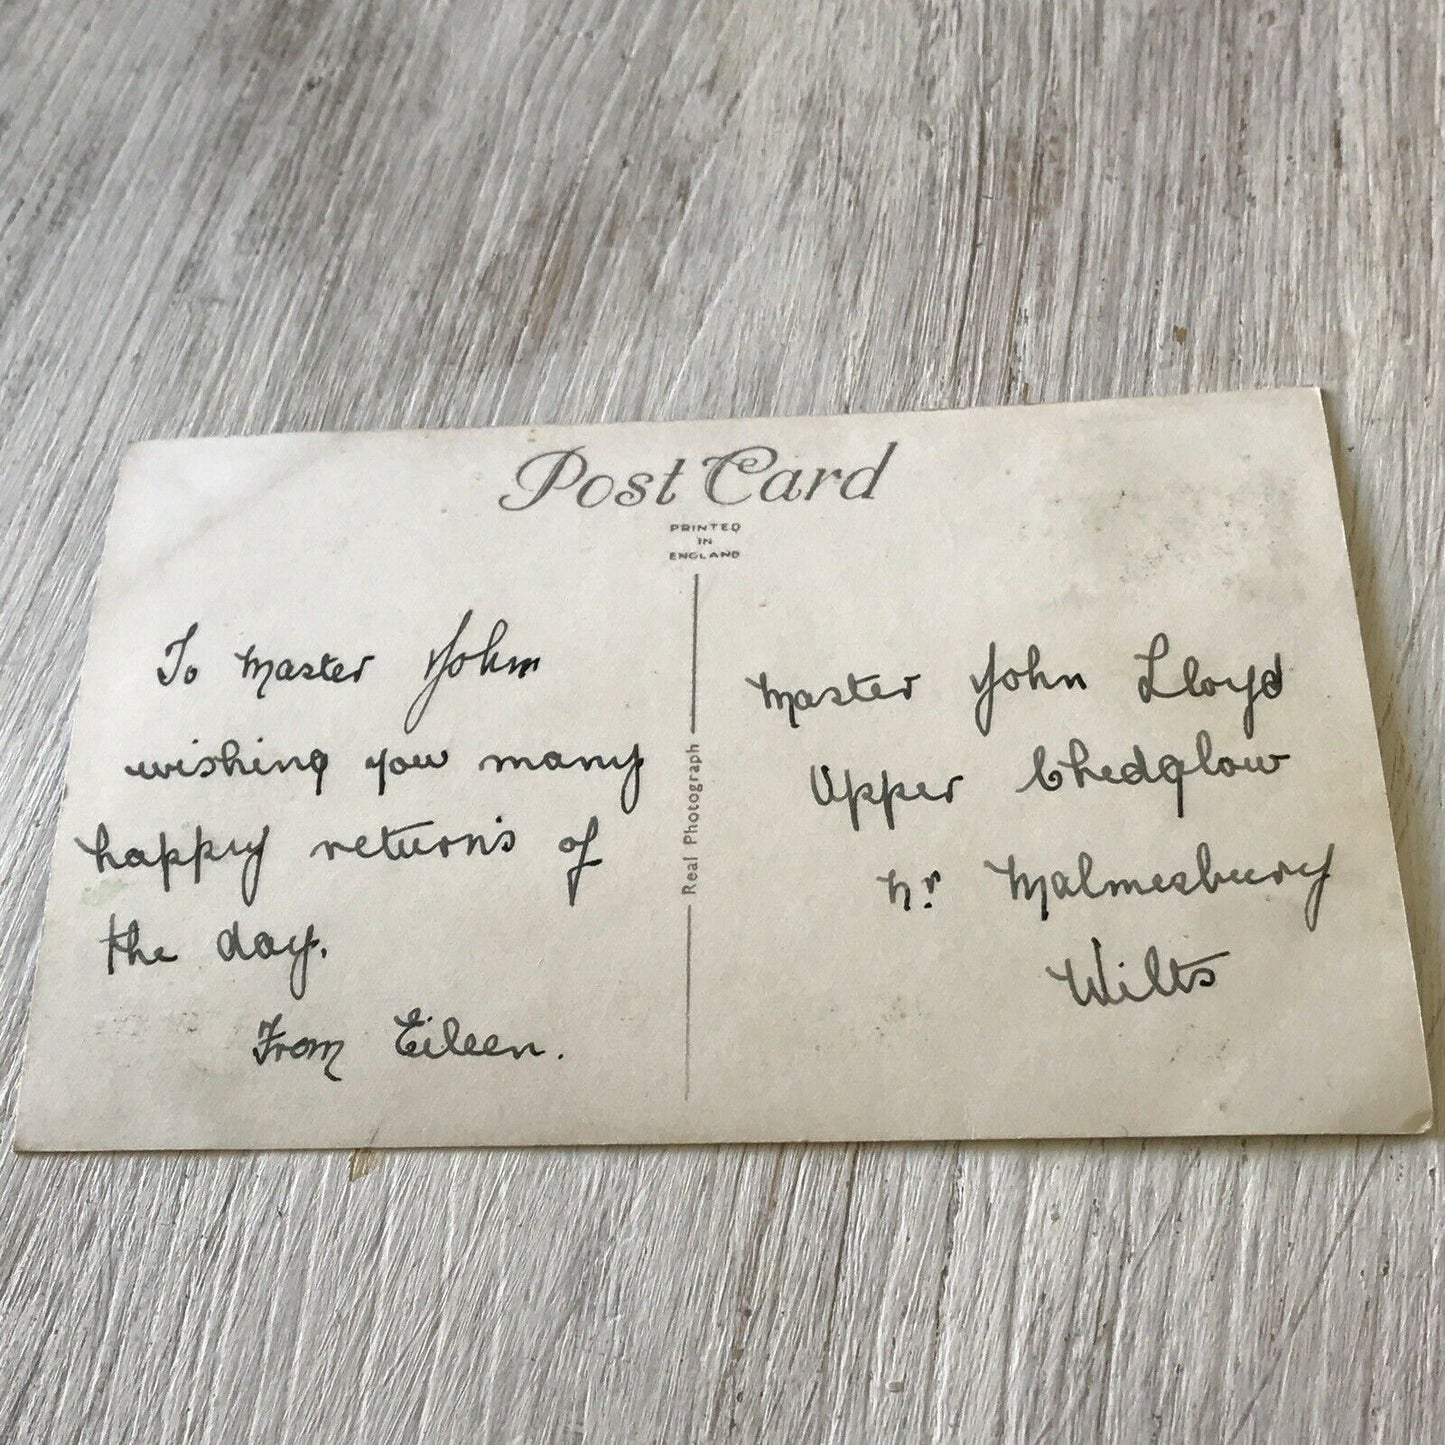 Post Card
PRINTED
IN
ENGLAND
To Master John
wishing you many
happy return's of
the day.
From Eileen.
Real Photograph
Master John Lloyd
Upper Chedglow
Nr. Malmesbury
Wilts